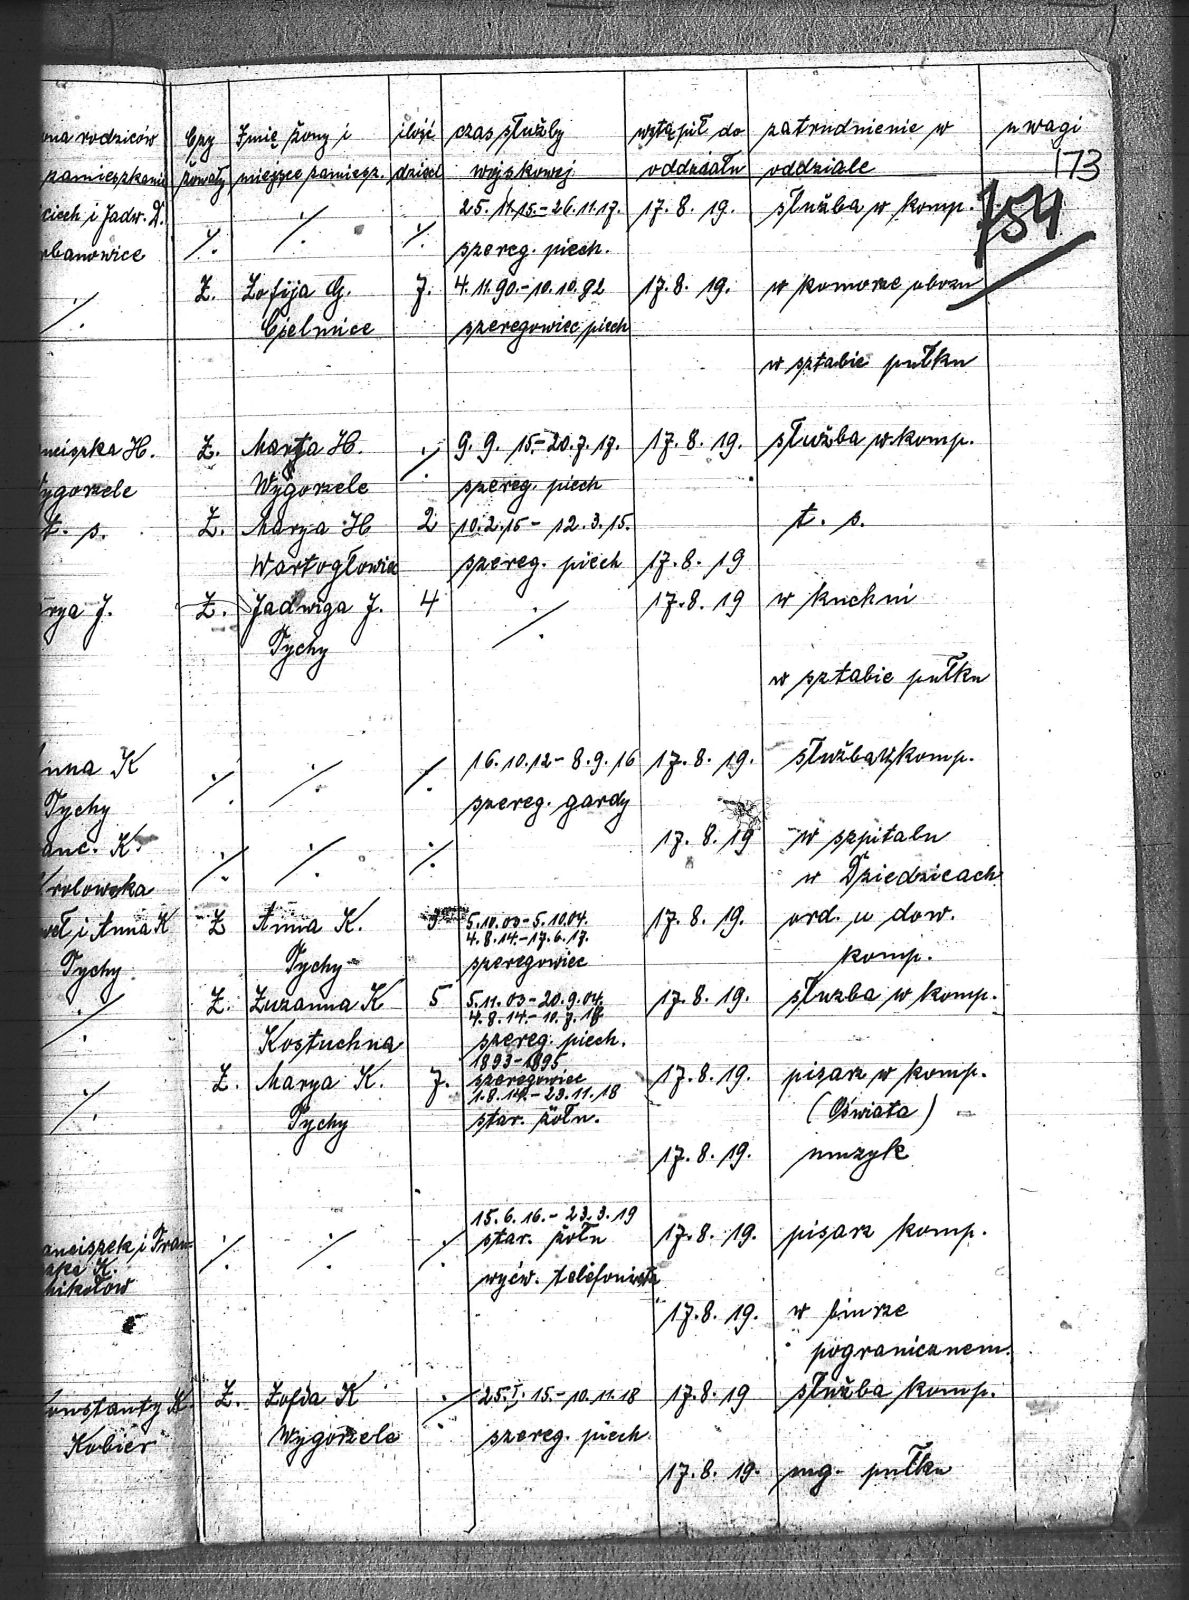 rodziców Czy Imię żony i ilość czas służby wstąpił do zatrudnienie w uwagi
żonaty miejsce zamiesz. dzieci wojskowej oddziału oddziale 173
i Jadw. D. 25. 11. 15. - 26. 11. 17. 17. 8. 19. służba w komp. 754
rbanowice ./. ./. ./. szereg. piech.
./. Ż. Zofija G. 7. 4. 11. 90. - 10. 10. 92 17. 8. 19. w komorze obozu
Cielmice szeregowiec piech
w sztabie pułku
nciszka H. Ż. Marta H. ./. 9. 9. 15. - 20. 7. 17. 17. 8. 19. służba w komp.
ygorzele Wygorzele szereg. piech
t. s. Ż. Marya H 2 10. 2. 15 - 12. 3. 15. t. s.
Wartogłowiec szereg. piech 17. 8. 19
rya J. Ż. Jadwiga J. 4 ./. 17. 8. 19 w kuchni
Tychy
w sztabie pułku
nna K ./. ./. ./. 16. 10. 12 - 8. 9. 16 17. 8. 19. służba w komp.
Tychy szereg. gardy
anc. K. ./. ./. ./. 17. 8. 19 w szpitalu
rolowska w Dziedzicach
eł i Anna K Ż Anna K. 5. 10. 03 - 5. 10. 04. 17. 8. 19. ord. u dow.
4. 8. 14. - 17. 6. 17.
Tychy. Tychy szeregowiec komp.
./. Ż. Zuzanna K 5 5. 11. 03 - 20. 9. 04. 17. 8. 19. służba w komp.
4. 8. 14. - 10. 7. 18
Kostuchna szereg. piech.
1893 - 1895
./. Ż. Marya K. 7. szeregowiec 17. 8. 19. pisarz w komp.
1. 8. 14. - 23. 11. 18
Tychy star. żołn. (Oświata)
17. 8. 19. muzyk
15. 6. 16. - 23. 3. 19
anciszek i Fran= ./. ./. ./. star. żołn 17. 8. 19. pisarz komp.
K.
mikołow wyćw. telefonista
17. 8. 19. w biurze
pogranicznem.
onstanty K. Ż. Zofia K ./. 25. I. 15. - 10. 11. 18 17. 8. 19 służba komp.
Kobier Wygorzele szereg. piech.
17. 8. 19. mg. pułku